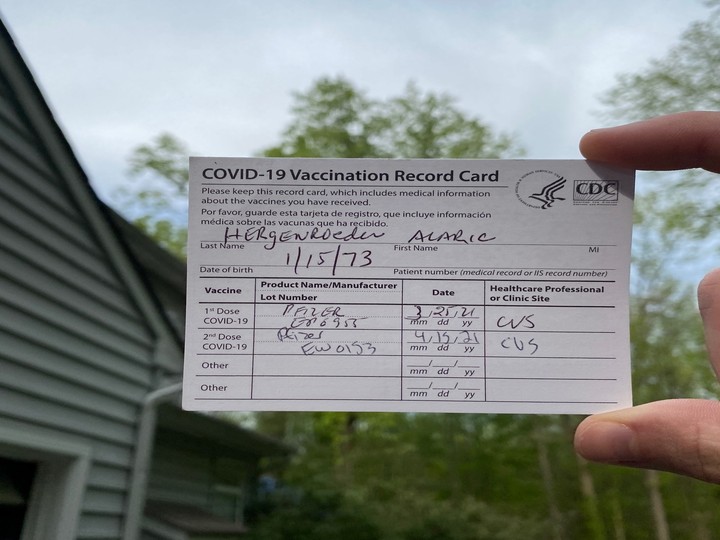 COVID-19 Vaccination Record Card
CDC
Please keep this record card, which includes medical information
about the vaccines you have received.
Por favor, guarde esta tarjeta de registro, que incluye información
médica sobre las vacunas que ha recibido.
HERGENROEDER ALARIC
Last Name First Name MI
1/15/73
Date of birth Patient number (medical record or IIS record number)
Vaccine Product Name/Manufacturer Date Healthcare Professional
Lot Number or Clinic Site
1st Dose PFIZER 3/25/21 CVS
COVID-19 mm dd yy
2nd Dose 4/15/21 CVS
COVID-19 EW0153 mm dd yy
Other
mm dd yy
Other
mm dd yy